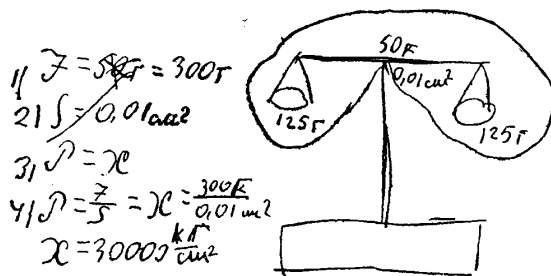 1) F = 50г = 300г
2) S = 0,01 см²
3) P = x
4) P = F/S = x = 300г/0,01 см²
x = 30000 кг/см²
50г
0,01 см²
125г
125г